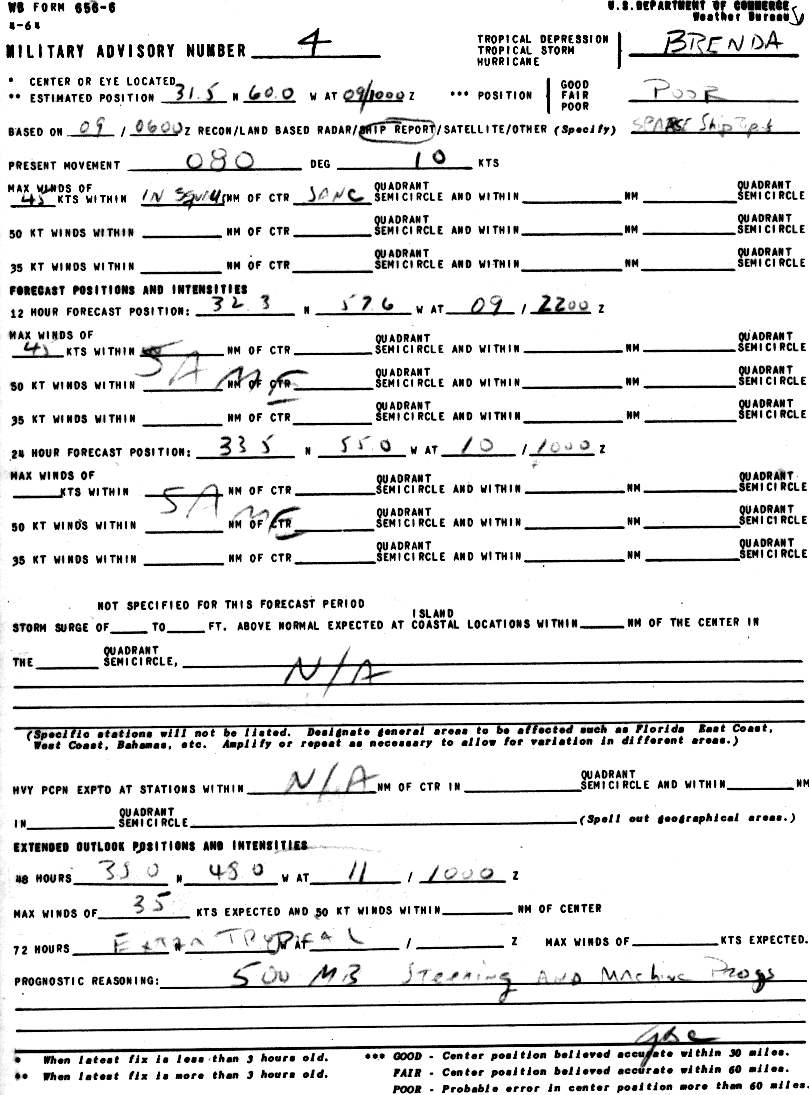 WB FORM 656-6
4-64
U.S. DEPARTMENT OF COMMERCE
Weather Bureau
MILITARY ADVISORY NUMBER 4 TROPICAL DEPRESSION TROPICAL STORM HURRICANE BRENDA
* CENTER OR EYE LOCATED
** ESTIMATED POSITION 31.5 N 60.0 W AT 09/1000 Z *** POSITION GOOD FAIR POOR POOR
BASED ON 09 / 0600 Z RECON/LAND BASED RADAR/SHIP REPORT/SATELLITE/OTHER (Specify) SPARSE Ship
PRESENT MOVEMENT 080 DEG 10 KTS
MAX WINDS OF
45 KTS WITHIN IN NM OF CTR QUADRANT SEMICIRCLE AND WITHIN NM QUADRANT SEMICIRCLE
50 KT WINDS WITHIN NM OF CTR QUADRANT SEMICIRCLE AND WITHIN NM QUADRANT SEMICIRCLE
35 KT WINDS WITHIN NM OF CTR QUADRANT SEMICIRCLE AND WITHIN NM QUADRANT SEMICIRCLE
FORECAST POSITIONS AND INTENSITIES
12 HOUR FORECAST POSITION: 32 3 N 57.6 W AT 09 / 2200 Z
MAX WINDS OF
45 KTS WITHIN NM OF CTR QUADRANT SEMICIRCLE AND WITHIN NM QUADRANT SEMICIRCLE
SAME
50 KT WINDS WITHIN NM OF CTR QUADRANT SEMICIRCLE AND WITHIN NM QUADRANT SEMICIRCLE
35 KT WINDS WITHIN NM OF CTR QUADRANT SEMICIRCLE AND WITHIN NM QUADRANT SEMICIRCLE
24 HOUR FORECAST POSITION: 33 5 N 55.0 W AT 10 / 1000 Z
MAX WINDS OF
KTS WITHIN NM OF CTR QUADRANT SEMICIRCLE AND WITHIN NM QUADRANT SEMICIRCLE
SAME
50 KT WINDS WITHIN NM OF CTR QUADRANT SEMICIRCLE AND WITHIN NM QUADRANT SEMICIRCLE
35 KT WINDS WITHIN NM OF CTR QUADRANT SEMICIRCLE AND WITHIN NM QUADRANT SEMICIRCLE
NOT SPECIFIED FOR THIS FORECAST PERIOD
STORM SURGE OF TO FT. ABOVE NORMAL EXPECTED AT ISLAND COASTAL LOCATIONS WITHIN NM OF THE CENTER IN
THE QUADRANT SEMICIRCLE,
N/A
(Specific stations will not be listed. Designate general areas to be affected such as Florida East Coast,
West Coast, Bahamas, etc. Amplify or repeat as necessary to allow for variation in different areas.)
HVY PCPN EXPTD AT STATIONS WITHIN N/A NM OF CTR IN QUADRANT SEMICIRCLE AND WITHIN NM
IN QUADRANT SEMICIRCLE (Spell out geographical areas.)
EXTENDED OUTLOOK POSITIONS AND INTENSITIES
48 HOURS 35 0 N 48 0 W AT 11 / 1000 Z
MAX WINDS OF 35 KTS EXPECTED AND 50 KT WINDS WITHIN NM OF CENTER
72 HOURS EXTRA TROPICAL N W AT / Z MAX WINDS OF KTS EXPECTED.
PROGNOSTIC REASONING: 500 MB Steering AND Machine Progs
* When latest fix is less than 3 hours old.
** When latest fix is more than 3 hours old.
*** GOOD - Center position believed accurate within 30 miles.
FAIR - Center position believed accurate within 60 miles.
POOR - Probable error in center position more than 60 miles.